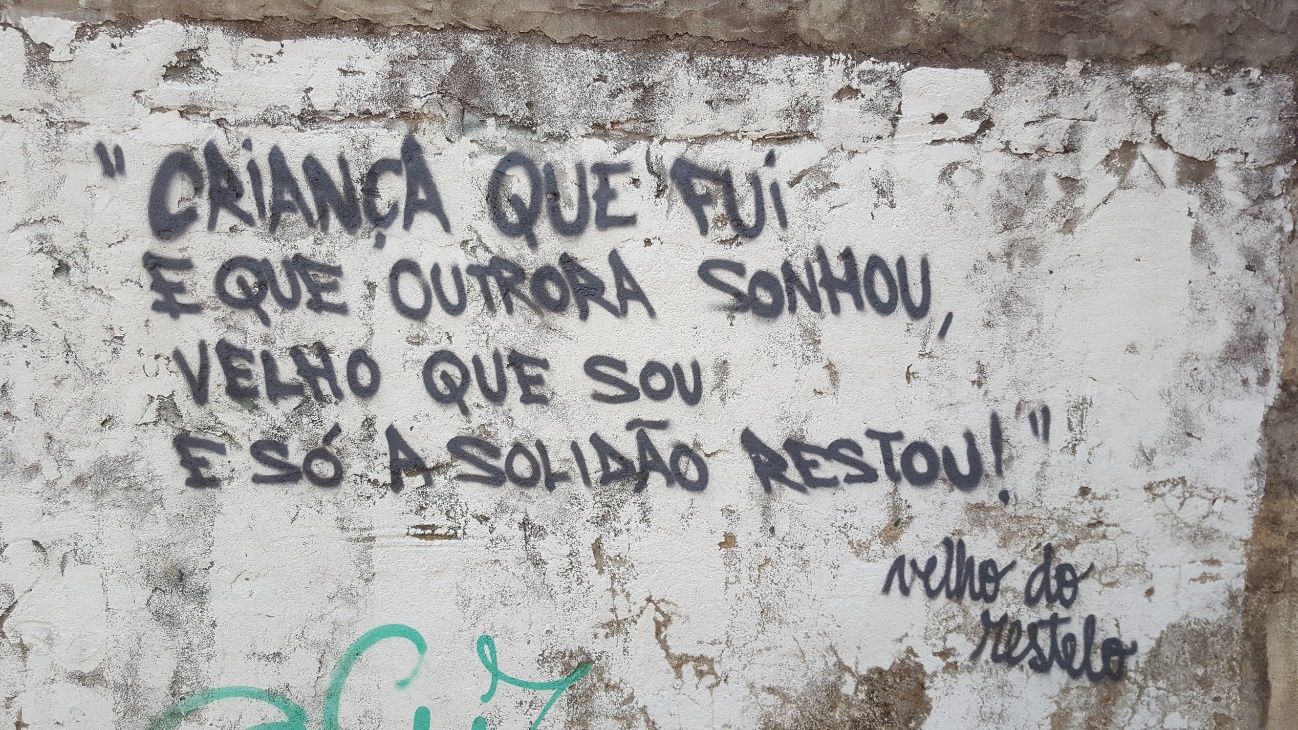 "CRIANÇA QUE FUI
E QUE OUTRORA SONHOU,
VELHO QUE SOU
E SÓ A SOLIDÃO RESTOU!"
velho do
restelo